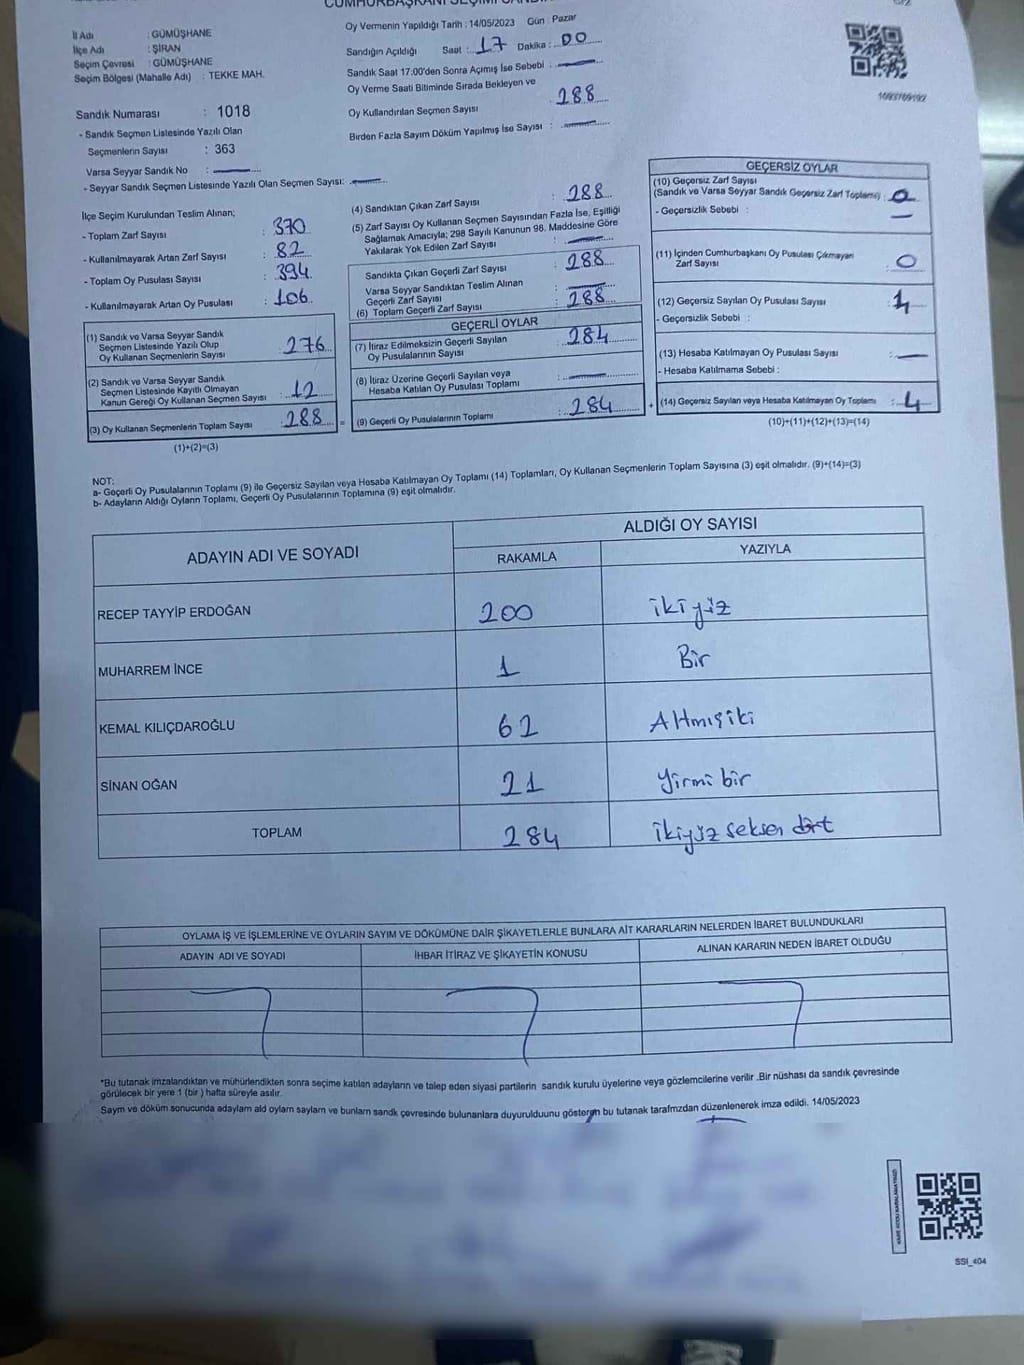 CUMHURBAŞKANI SEÇİMİ SANDIK
İl Adı : GÜMÜŞHANE
İlçe Adı : ŞİRAN
Seçim Çevresi : GÜMÜŞHANE
Seçim Bölgesi (Mahalle Adı) : TEKKE MAH.
Oy Vermenin Yapıldığı Tarih : 14/05/2023 Gün : Pazar
Sandığın Açıldığı Saat : 17 Dakika : 00
Sandık Saat 17:00'den Sonra Açımış İse Sebebi :
Oy Verme Saati Bitiminde Sırada Bekleyen ve
Oy Kullandırılan Seçmen Sayısı : 288
Birden Fazla Sayım Döküm Yapılmış İse Sayısı :
Sandık Numarası : 1018
- Sandık Seçmen Listesinde Yazılı Olan
Seçmenlerin Sayısı : 363
Varsa Seyyar Sandık No :
- Seyyar Sandık Seçmen Listesinde Yazılı Olan Seçmen Sayısı:
İlçe Seçim Kurulundan Teslim Alınan;
- Toplam Zarf Sayısı : 370
- Kullanılmayarak Artan Zarf Sayısı : 82
- Toplam Oy Pusulası Sayısı : 394
- Kullanılmayarak Artan Oy Pusulası : 106
(1) Sandık ve Varsa Seyyar Sandık
Seçmen Listesinde Yazılı Olup
Oy Kullanan Seçmenlerin Sayısı : 276
(2) Sandık ve Varsa Seyyar Sandık
Seçmen Listesinde Kayıtlı Olmayan
Kanun Gereği Oy Kullanan Seçmen Sayısı : 12
(3) Oy Kullanan Seçmenlerin Toplam Sayısı : 288
(1)+(2)=(3)
(4) Sandıktan Çıkan Zarf Sayısı : 288
(5) Zarf Sayısı Oy Kullanan Seçmen Sayısından Fazla İse, Eşitliği
Sağlamak Amacıyla; 298 Sayılı Kanunun 98. Maddesine Göre
Yakılarak Yok Edilen Zarf Sayısı :
Sandıkta Çıkan Geçerli Zarf Sayısı : 288
Varsa Seyyar Sandıktan Teslim Alınan
Geçerli Zarf Sayısı :
(6) Toplam Geçerli Zarf Sayısı : 288
GEÇERLİ OYLAR
(7) İtiraz Edilmeksizin Geçerli Sayılan
Oy Pusulalarının Sayısı : 284
(8) İtiraz Üzerine Geçerli Sayılan veya
Hesaba Katılan Oy Pusulası Toplamı :
= (9) Geçerli Oy Pusulalarının Toplamı : 284
GEÇERSİZ OYLAR
(10) Geçersiz Zarf Sayısı
(Sandık ve Varsa Seyyar Sandık Geçersiz Zarf Toplamı) : 0
- Geçersizlik Sebebi :
(11) İçinden Cumhurbaşkanı Oy Pusulası Çıkmayan
Zarf Sayısı : 0
(12) Geçersiz Sayılan Oy Pusulası Sayısı : 4
- Geçersizlik Sebebi :
(13) Hesaba Katılmayan Oy Pusulası Sayısı :
- Hesaba Katılmama Sebebi :
+ (14) Geçersiz Sayılan veya Hesaba Katılmayan Oy Toplamı : 4
(10)+(11)+(12)+(13)=(14)
NOT:
a- Geçerli Oy Pusulalarının Toplamı (9) ile Geçersiz Sayılan veya Hesaba Katılmayan Oy Toplamı (14) Toplamları, Oy Kullanan Seçmenlerin Toplam Sayısına (3) eşit olmalıdır. (9)+(14)=(3)
b- Adayların Aldığı Oyların Toplamı, Geçerli Oy Pusulalarının Toplamına (9) eşit olmalıdır.
ADAYIN ADI VE SOYADI ALDIĞI OY SAYISI
RAKAMLA YAZIYLA
RECEP TAYYİP ERDOĞAN 200 ikiyüz
MUHARREM İNCE 1 Bir
KEMAL KILIÇDAROĞLU 62 Altmışiki
SİNAN OĞAN 21 Yirmi bir
TOPLAM 284 ikiyüz seksen dört
OYLAMA İŞ VE İŞLEMLERİNE VE OYLARIN SAYIM VE DÖKÜMÜNE DAİR ŞİKAYETLERLE BUNLARA AİT KARARLARIN NELERDEN İBARET BULUNDUKLARI
ADAYIN ADI VE SOYADI İHBAR İTİRAZ VE ŞİKAYETİN KONUSU ALINAN KARARIN NEDEN İBARET OLDUĞU
*Bu tutanak imzalandıktan ve mühürlendikten sonra seçime katılan adayların ve talep eden siyasi partilerin sandık kurulu üyelerine veya gözlemcilerine verilir .Bir nüshası da sandık çevresinde
görülecek bir yere 1 (bir ) hafta süreyle asılır.
Saym ve döküm sonucunda adaylam ald oylam saylam ve bunlam sandk çevresinde bulunanlara duyurulduunu gösteren bu tutanak tarafmzdan düzenlenerek imza edildi. 14/05/2023
SSI_404